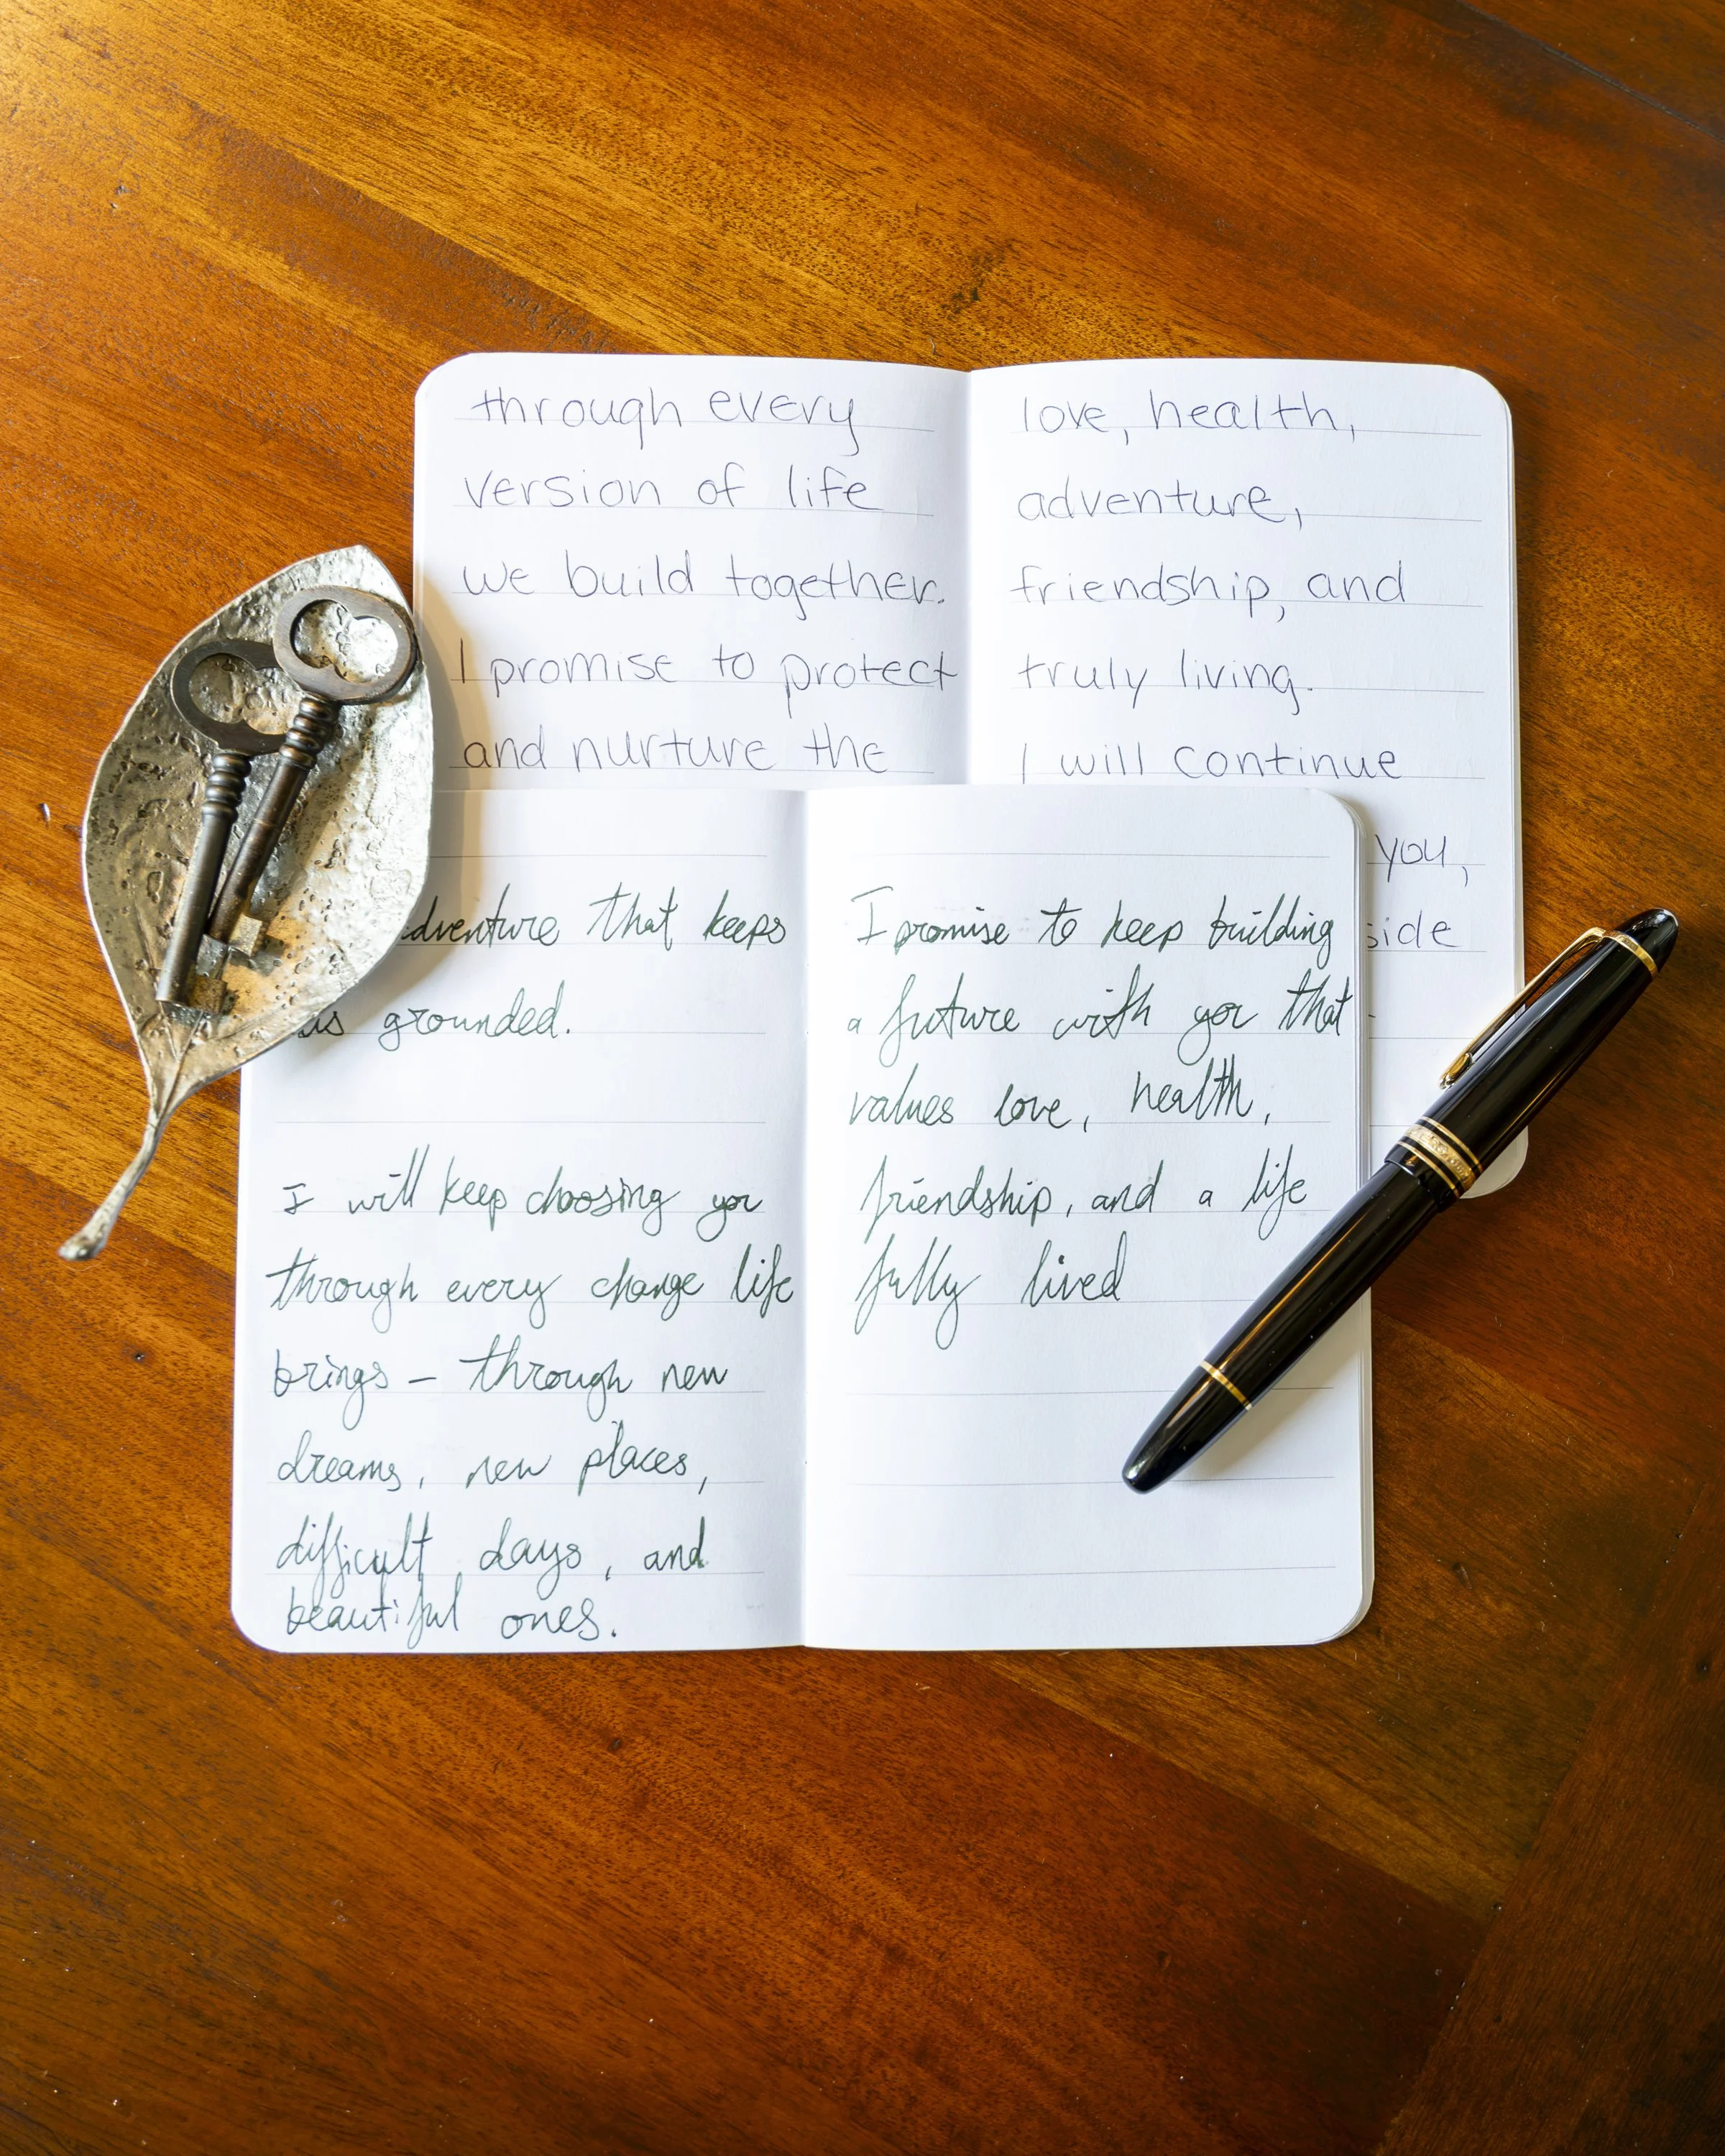 through every
version of life
we build together.
I promise to protect
and nurture the
love, health,
adventure,
friendship, and
truly living.
I will continue
you,
side
dventure that keeps
us grounded.
I will keep choosing you
through every change life
brings – through new
dreams, new places,
difficult days, and
beautiful ones.
I promise to keep building
a future with you that
values love, health,
friendship, and a life
fully lived